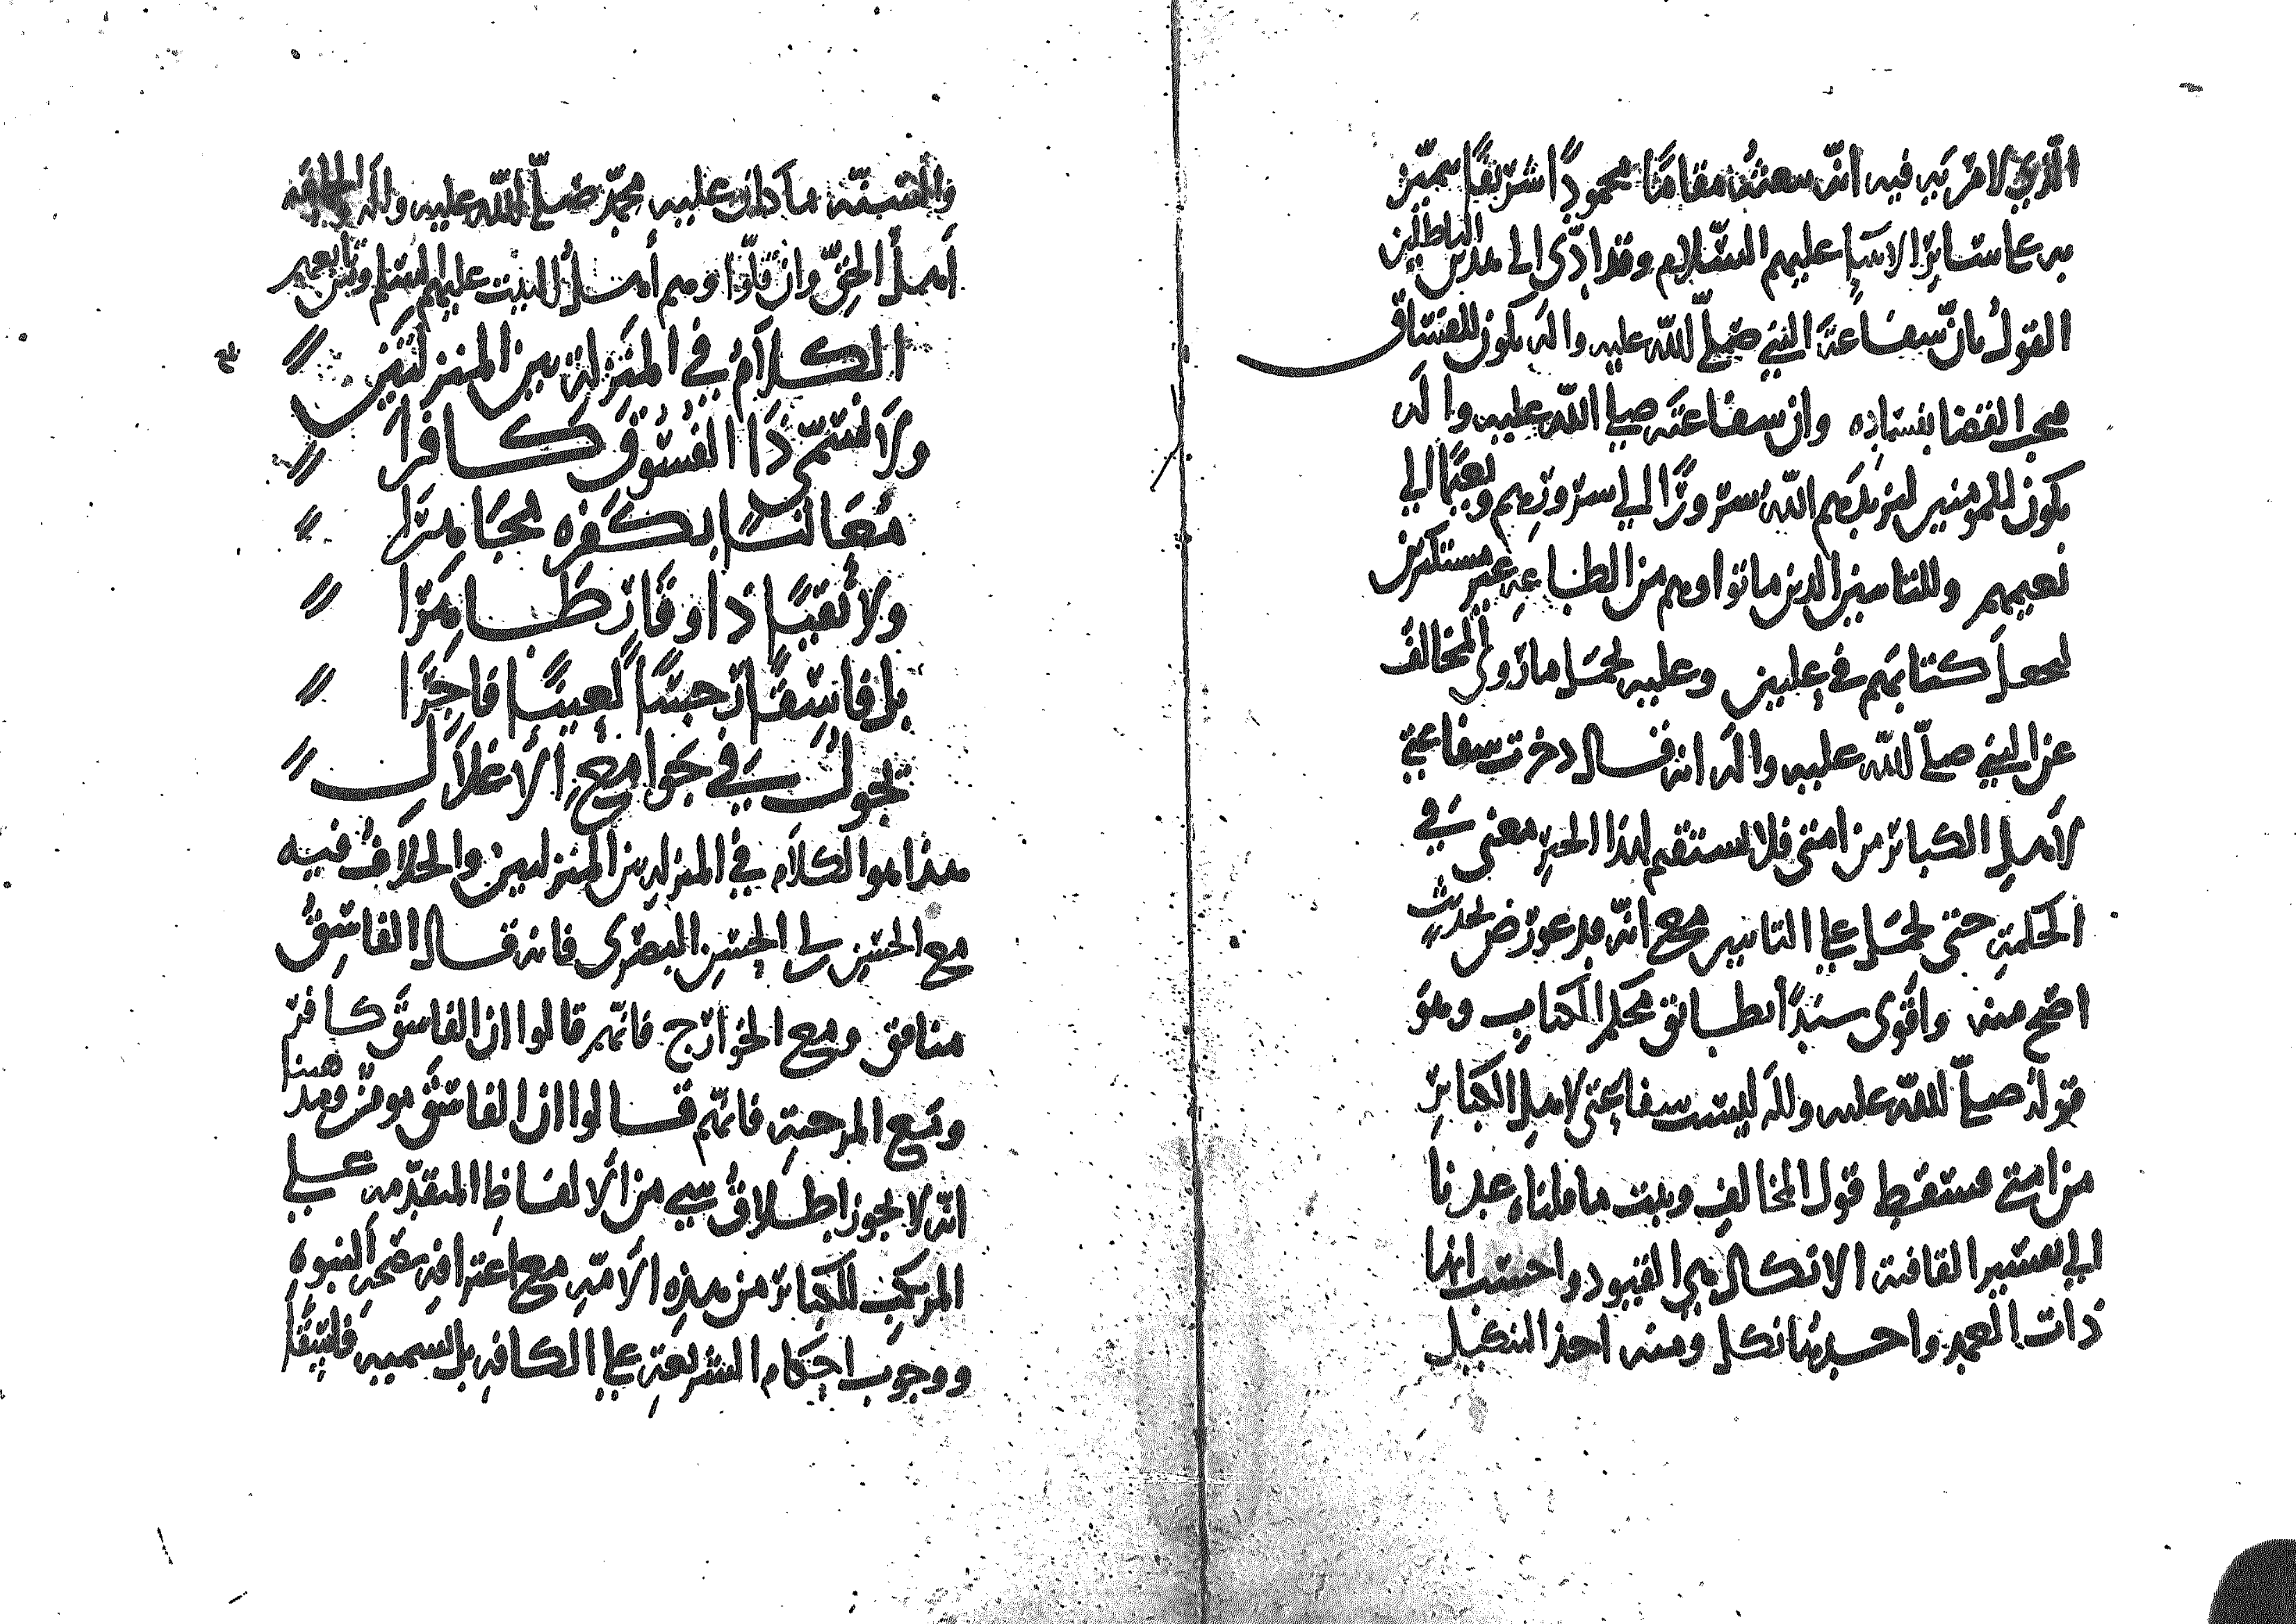 الذي لا مرية فيه انه سعثه مقامًا محمودًا شريفًا يميّز
به على سائر الانبيا عليهم السّلام وقد ادّى الى هدىن الباطلين
القولُ بانّ شفاعةَ النبي صلى الله عليه واله يكون للفساق
محب القضا بفساده وان شفاعتَه صلى الله عليه واله
يكون للمومنين ليزيدهم الله سرورًا الى سرورهم ونعيمًا الى
نعيمهم وللتائبين الذين ماتوا وهم من الطاعةِ غير مستكثرين
لىجعلَ كتابهم في عليين وعليه يحمل ما روى المخالف
عن النبي صلى الله عليه واله انه قال دخرت شفاعتي
لأهل الكبائر من امتي فلا يستقيم لهذا الخبر معنى في
الحكمةِ حتى يحمل على التائبين مع انّه قد عورض بحديثٍ
اصح منه واقوى سندًا يطابق محكم الكتاب وهو
قوله صلى الله عليه واله ليست شفاعتي لاهل الكبائر
من امتي فسقط قول المخالف وثبت ما قلناه عدنا
الى تفسير القافية الانكال هي القيود واحسب انها
ذات العمد واحدها نكل ومنه اخذ التنكيل
والسّنّة ما كان عليه محمّد صلى الله عليه واله والجماعة
أهل الحقّ وان قلّوا وهم أهل البيت عليهم السلم ومن تابعهم
الكلام في المنزلة بين المنزلتين
ولا نسمّى ذا الفسوق كافرا
معالنًا بكفره مجاهرا
ولا تقيًا ذا وقار طاهرا
بل فاسقًا رجسًا لعينًا فاجرًا
يجول في جوامع الأغلال
هذا هو الكلام في المنزلة بين المنزلتين والخلاف فيه
مع الحسن بن ابى الحسن البصرى فانه قال الفاسق
منافق ومع الخوارج فانهم قالوا ان الفاسق كافر
ومع المرجئة فانهم قالوا ان الفاسق مومنٌ ومذهبنا
انه لا يجوز اطلاق شي من الالفاظ المتقدّمه على
المرتكب للكبائر من هذه الأمّة مع اعترافه بصحة النبوة
ووجوب احكام الشريعة على الكافة بل نسميه فاسقًا